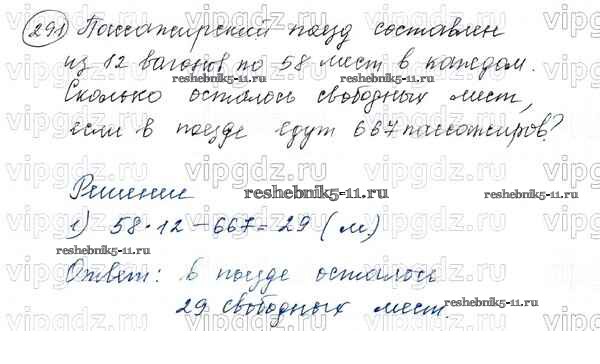 291 Пассажирский поезд составлен
из 12 вагонов по 58 мест в каждом.
Сколько осталось свободных мест,
если в поезде едут 667 пассажиров?
Решение
1) 58·12-667=29 (м.)
Ответ: в поезде осталось
29 свободных мест.
vipgdz.ru
reshebnik5-11.ru